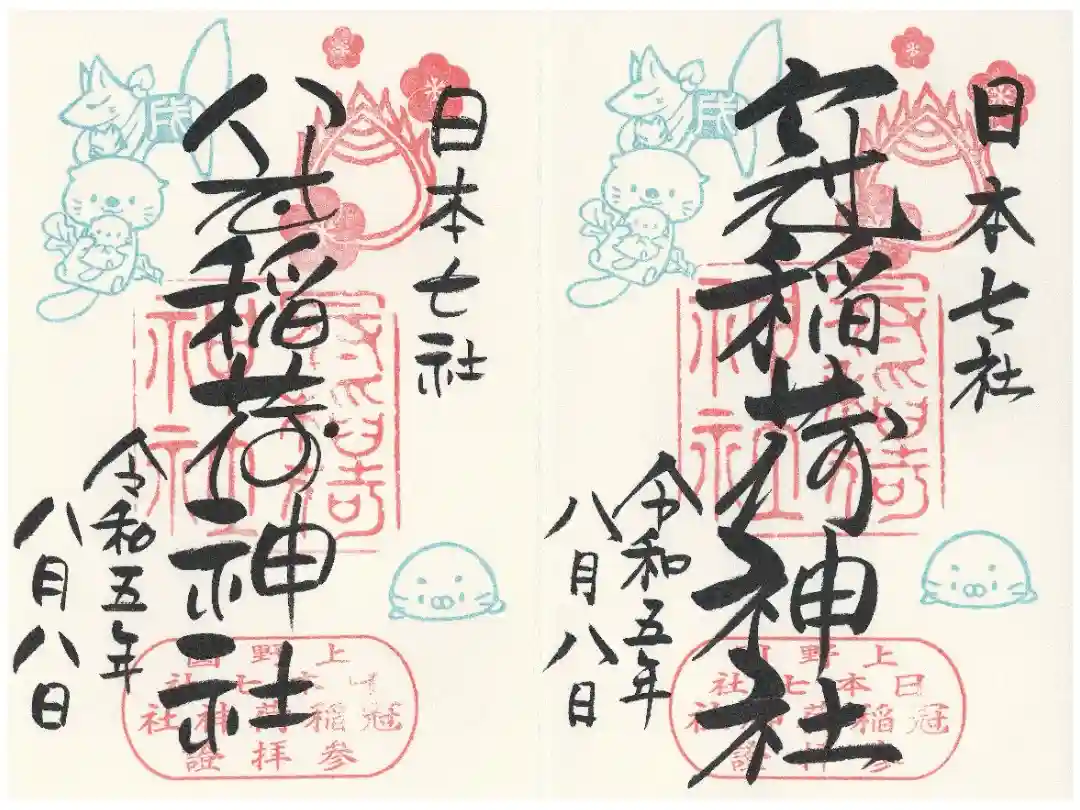 日本七社
冠稲荷神社
令和五年
八月八日
戌
上野國
日本七社
冠稲荷神社
參拝證
日本七社
冠稲荷神社
令和五年
八月八日
戌
上野國
日本七社
冠稲荷神社
參拝證